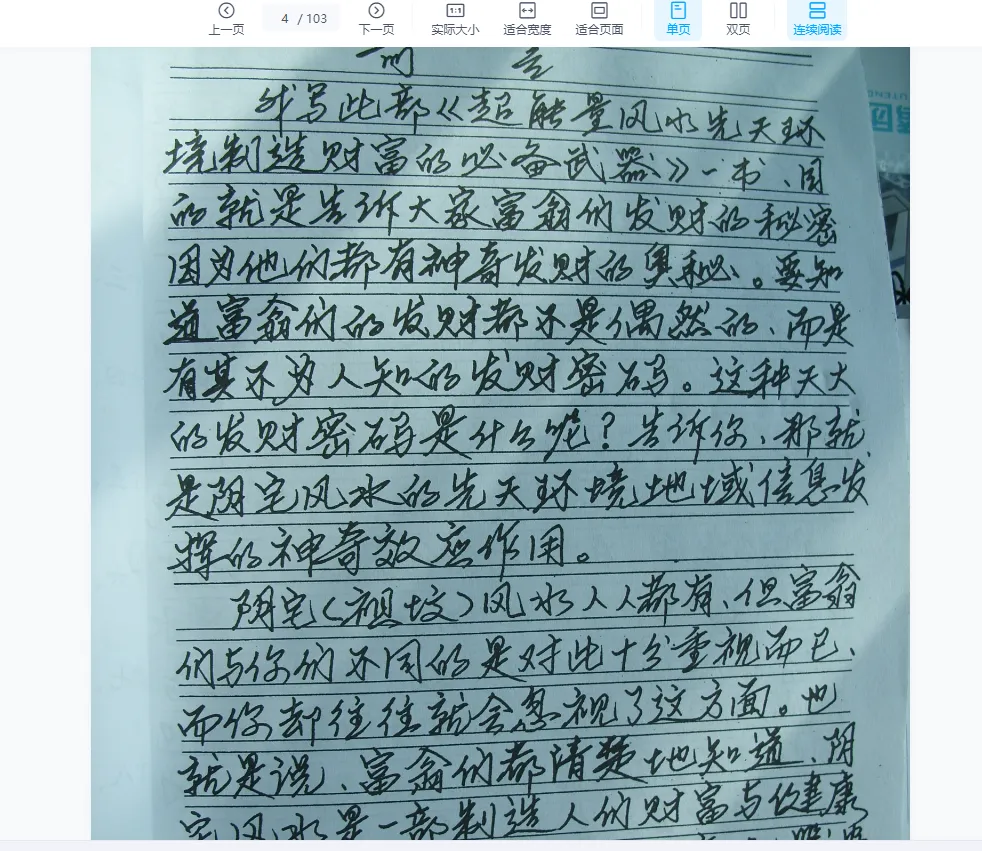 上一页 4 / 103 下一页 实际大小 适合宽度 适合页面 单页 双页 连续阅读
前 言
我写此部《超能量风水先天环
境制造财富的必备武器》一书、目
的就是告诉大家富翁们发财的秘密
因为他们都有神奇发财的奥秘。要知
道富翁们的发财都不是偶然的、而是
有其不为人知的发财密码。这种天大
的发财密码是什么呢？告诉你、那就
是阴宅风水的先天环境地域信息发
挥的神奇效应作用。
阴宅（祖坟）风水人人都有、但富翁
们与你们不同的是对此十分重视而已、
而你却往往就会忽视了这方面。也
就是说、富翁们都清楚地知道、阴
宅风水是一部制造人们财富与健康